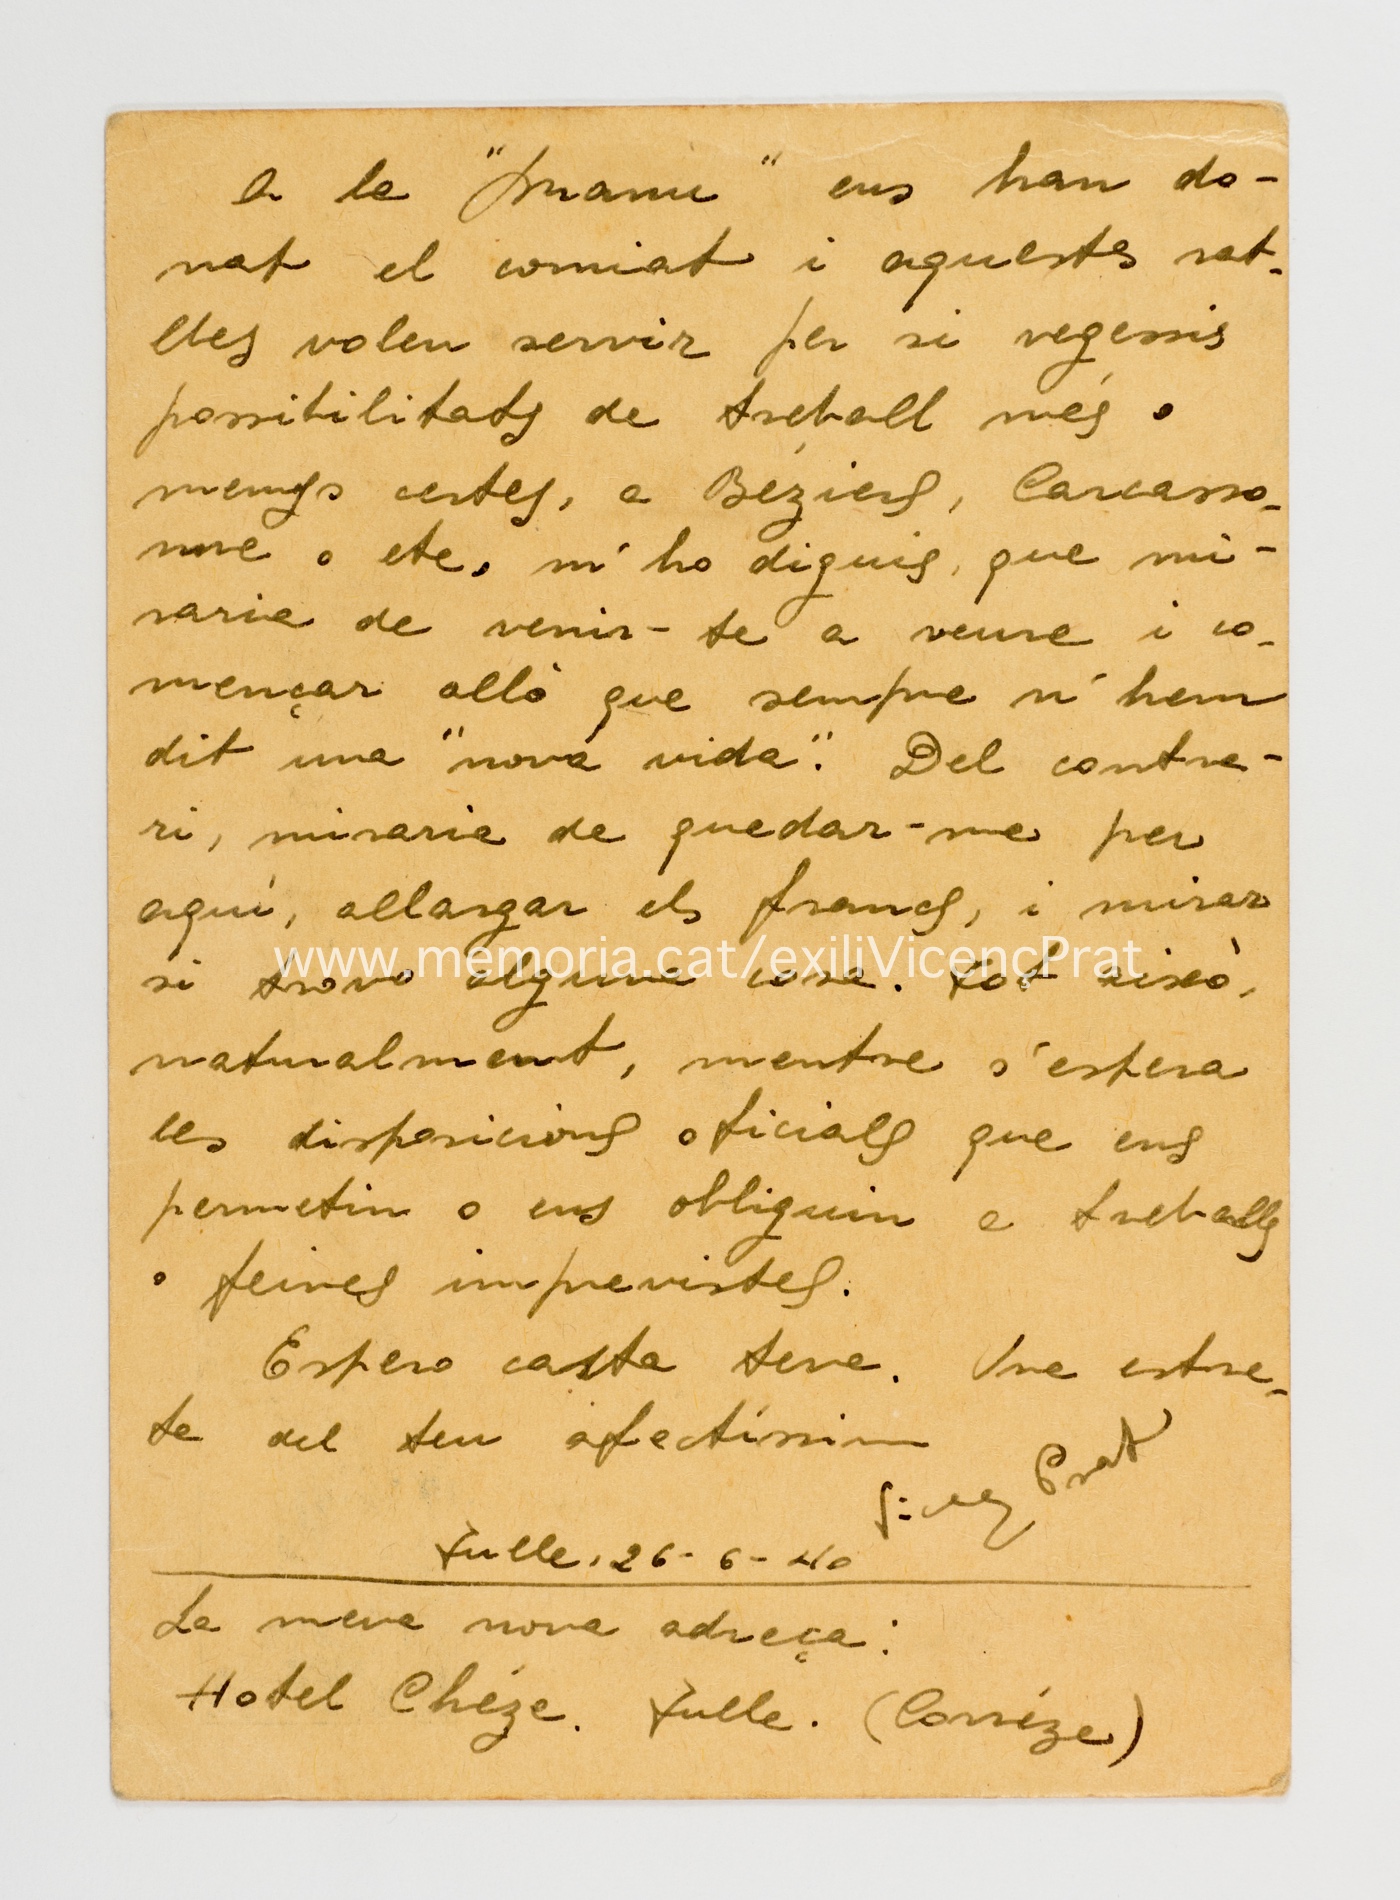 A la "Manu" ens han do-
nat el comiat i aquestes rat-
lles volen servir per si vegessis
possibilitats de treball més o
menys certes, a Béziers, Carcasso-
nne o etc. m'ho diguis, que mi-
raria de venir-te a veure i co-
mençar allò que sempre n'hem
dit una "nova vida". Del contra-
ri, miraria de quedar-me per
aquí, allargar els francs, i mirar
www.memoria.cat/exiliVicencPrat
si trovo alguna cosa. Tot això,
naturalment, mentre s'espera
les disposicions oficials que ens
permetin o ens obliguin a treballs
o feines imprevistes.
Espero carta teva. Una estre-
ta del teu afectíssim
Prat
Tulle, 26-6-40
La meva nova adreça:
Hotel Chéze. Tulle. (Corréze)